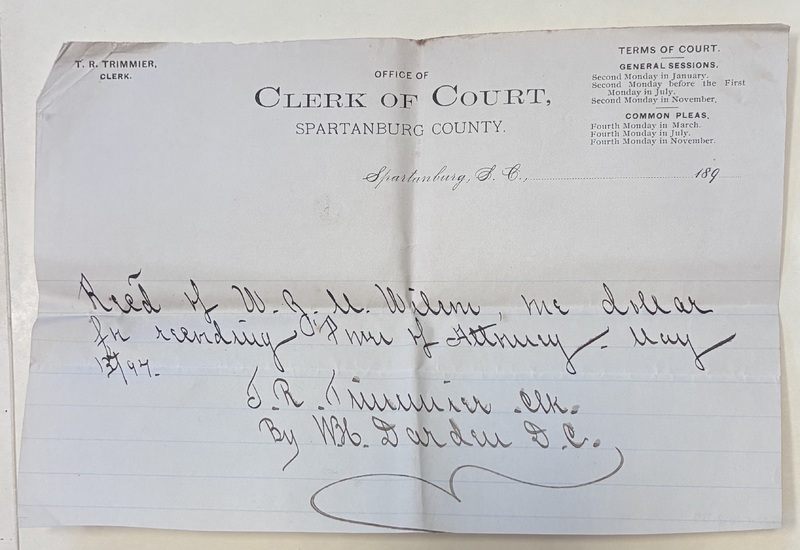 T. R. TRIMMIER,
CLERK.
OFFICE OF
CLERK OF COURT,
SPARTANBURG COUNTY.
TERMS OF COURT.
GENERAL SESSIONS.
Second Monday in January.
Second Monday before the First
Monday in July.
Second Monday in November.
COMMON PLEAS.
Fourth Monday in March.
Fourth Monday in July.
Fourth Monday in November.
Spartanburg, S. C., 189
Recd of W. J. M. Wilson, one dollar
for recording Power of Attorney. May
/97.
T. R. Trimmier Clk.
By WH. Darden D.C.